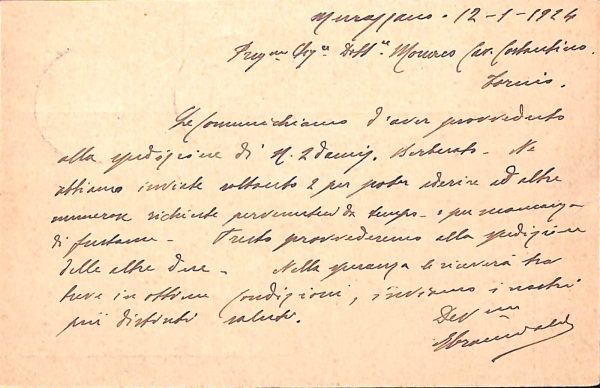 12-1-1924
Preg.mo Sig.r Dott.r Cav. Costantino
Torino.
Le Comunichiamo d'aver provveduto
alla spedizione di N. 2 damig. Barberato - Ne
abbiamo inviate soltanto 2 per poter aderire ad altre
numerose richieste da tempo - e per mancanza
di fustame - Presto provvederemo alla spedizione
delle altre due - Nella speranza le riceverà tra
breve in ottime condizioni, inviamo i nostri
più distinti saluti.
Dev.mi